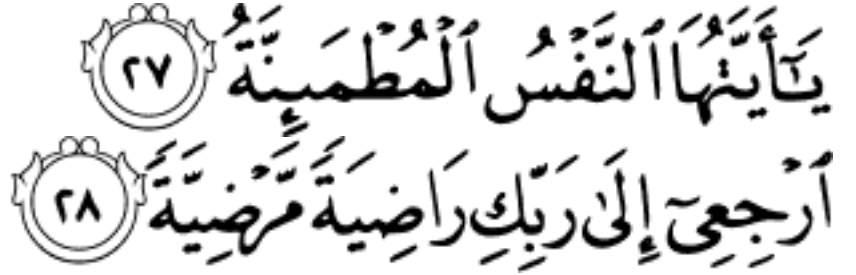 يَـٰٓأَيَّتُهَا ٱلنَّفْسُ ٱلْمُطْمَئِنَّةُ ٢٧
ٱرْجِعِىٓ إِلَىٰ رَبِّكِ رَاضِيَةً مَّرْضِيَّةً ٢٨